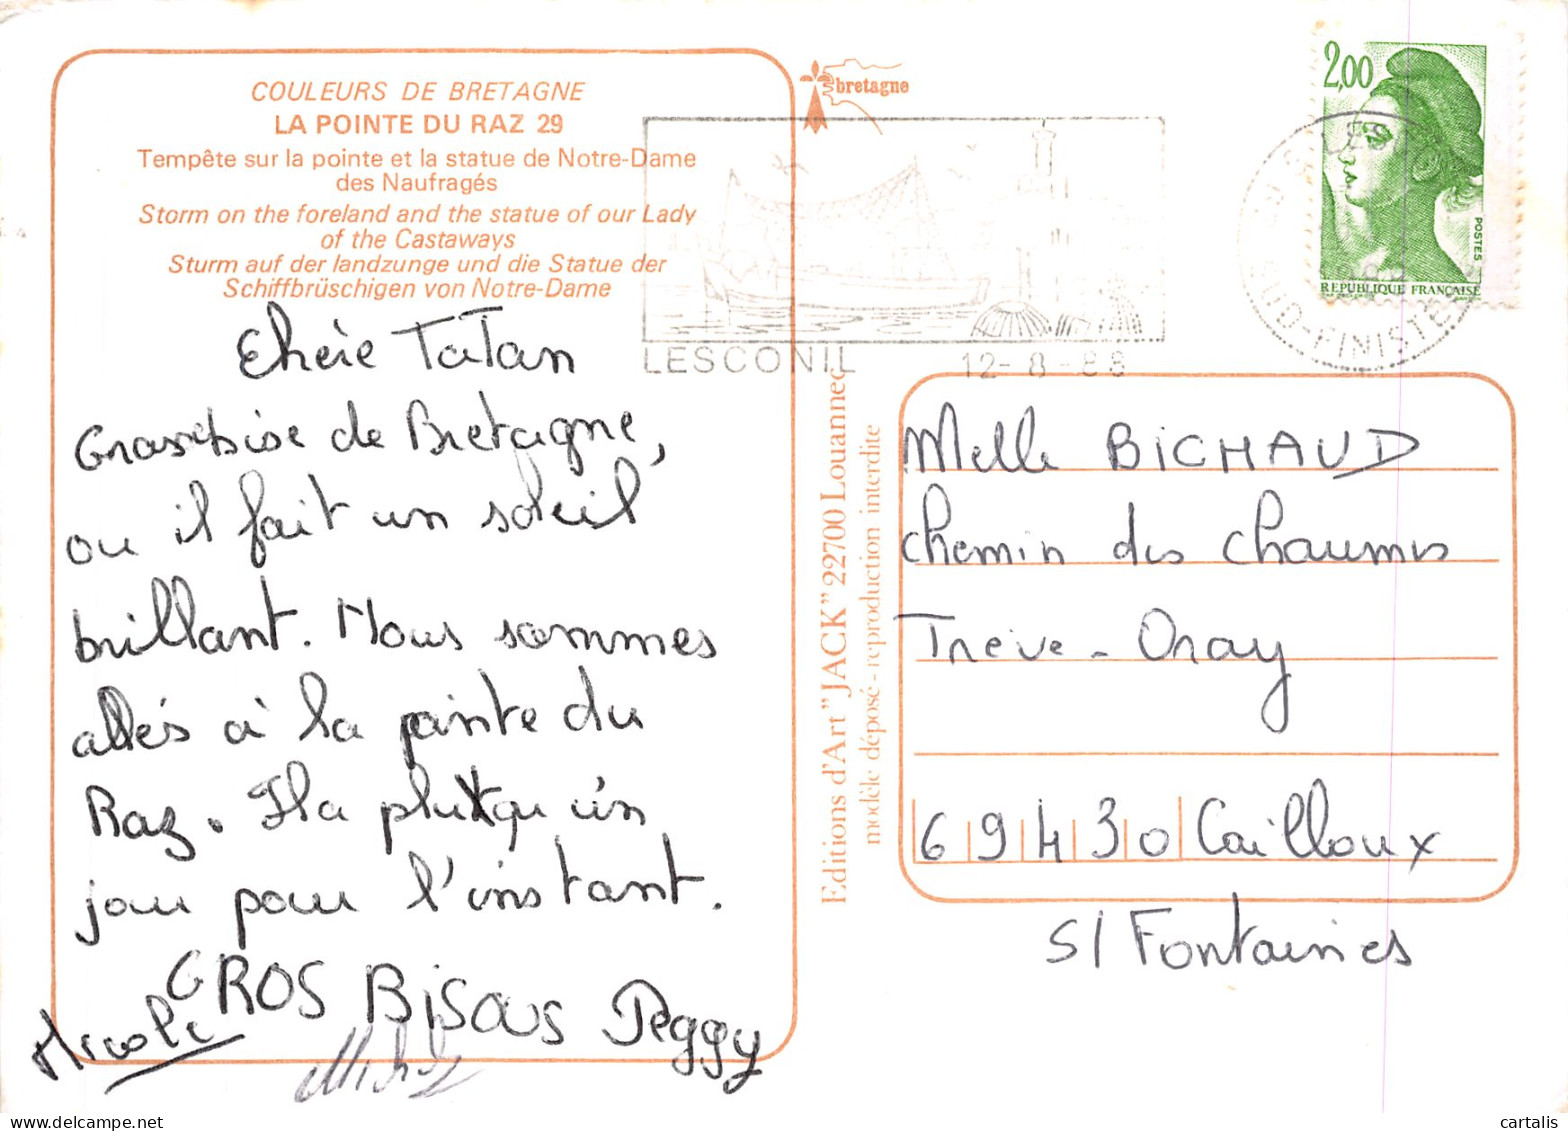 COULEURS DE BRETAGNE
LA POINTE DU RAZ 29
Tempête sur la pointe et la statue de Notre-Dame
des Naufragés
Storm on the foreland and the statue of our Lady
of the Castaways
Sturm auf der landzunge und die Statue der
Schiffbrüschigen von Notre-Dame
Chère TaTan
Grosse bise de Bretagne,
ou il fait un soleil
brillant. Nous sommes
allés à la pointe du
Raz. Il a plut qu'un
jour pour l'instant.
GROS BiSous Peggy
Nicole
Michel
bretagne
2,00
POSTES
REPUBLIQUE FRANÇAISE
LESCONIL
12-8-88
SUD-FINISTE
Editions d'Art "JACK" 22700 Louannec
modèle déposé - reproduction interdite
Melle BiCHAUD
chemin des chaumes
Treive - Oray
69430 Cailloux
S/ Fontaines
cartalis